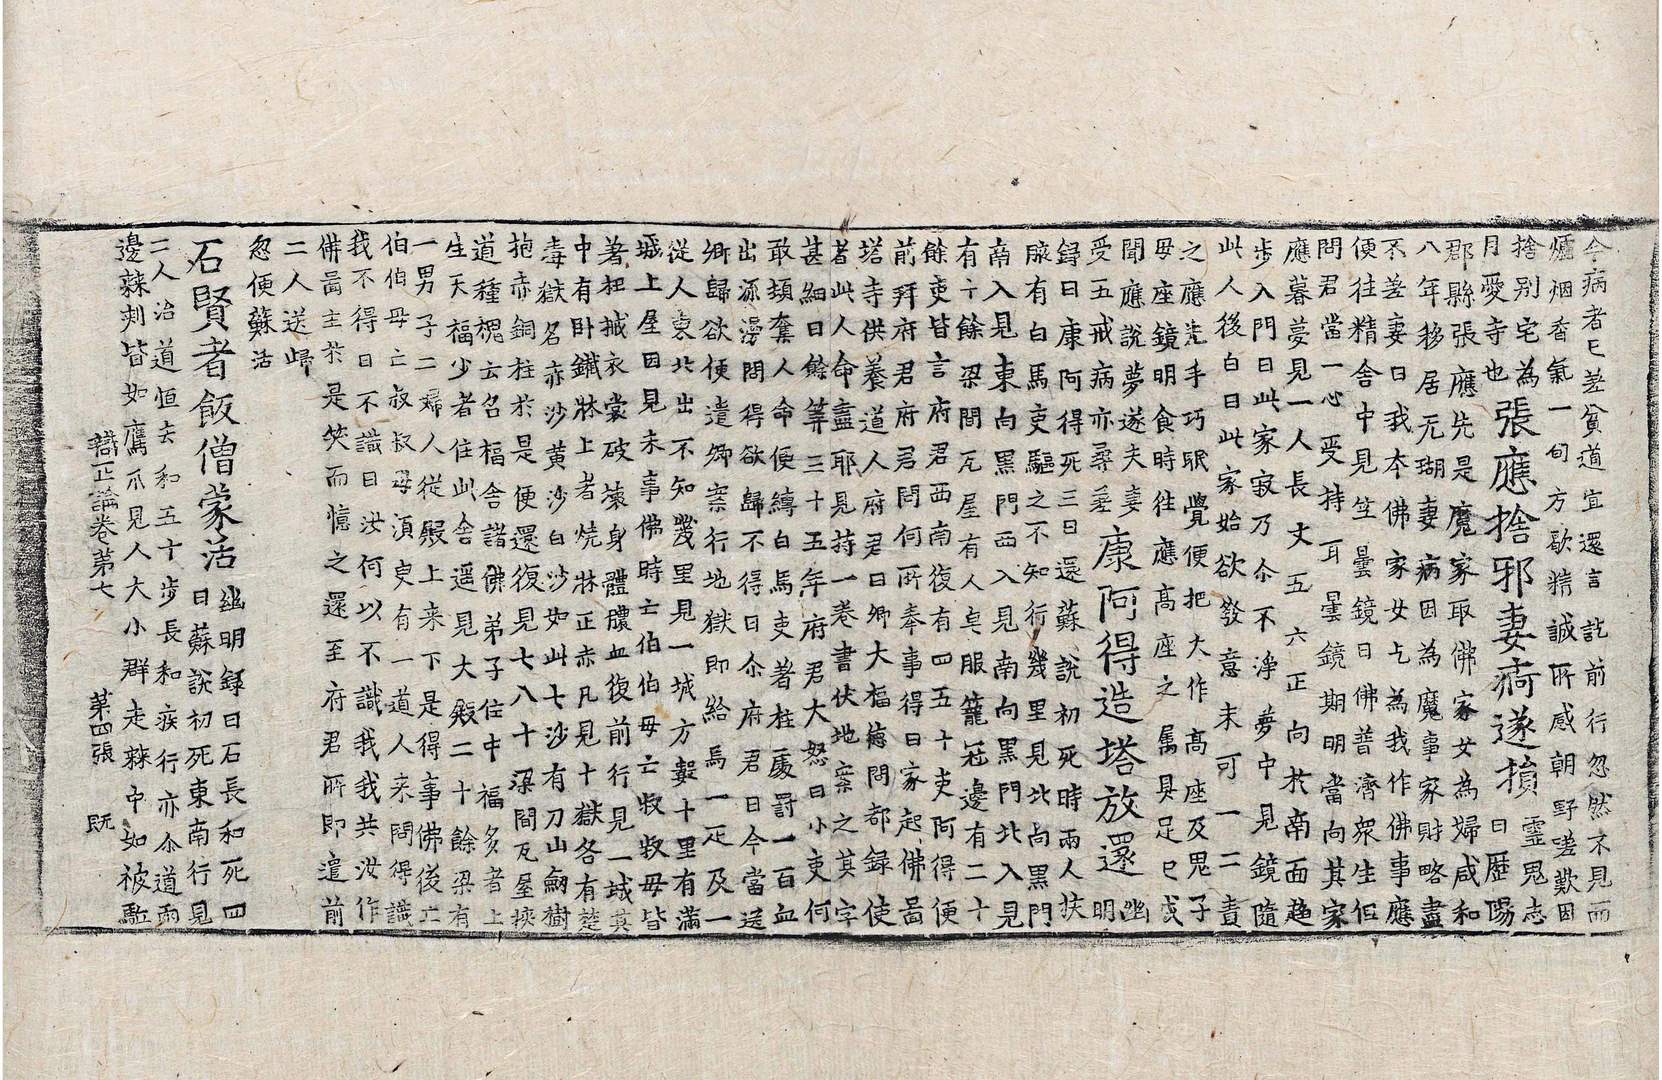 今病者已差貧道宜還言訖前行忽然不見而
爐烟香氣一旬方歇精誠所感朝野嗟歎因
捨別宅為
月愛寺也 張應捨邪妻痾遂損 靈鬼志曰歷陽
郡縣張應先是魔家取佛家女為婦咸和
八年移居无瑚妻病因為魔事家財略盡
不差妻曰我本佛家女乞為我作佛事應
便往精舍中見竺曇鏡曰佛普濟眾生但
問君當一心受持耳曇鏡期明當向其家
應暮夢見一人長丈五六正向於南面趨
步入門曰此家寂乃尒不淨夢中見鏡隨
此人後白曰此家始欲發意未可一二責
之應先手巧眠覺便把大作高座及鬼子
母座鏡明食時往應高座之屬具足已成
聞應說夢遂夫妻
受五戒病亦尋差 康阿得造塔放還 幽明
錄曰康阿得死三日還蘇說初死時兩人扶
腋有白馬吏驅之不知行幾里見北向黑門
南入見東向黑門西入見南向黑門北入見
有十餘梁間瓦屋有人皂服籠冠邊有二十
餘吏皆言府君西南復有四五十吏阿得便
前拜府君府君問何所奉事得曰家起佛啚
塔寺供養道人府君曰卿大福德問都錄使
者此人命盡耶見持一卷書伏地案之其字
甚細曰餘筭三十五年府君大怒曰小吏何
敢頓奪人命便縛白馬吏著柱處罰一百血
出流漫問得欲歸不得曰尒府君曰今當送
卿歸欲便遣卿案行地獄即給馬一疋及一
從人東北出不知幾里見一城方數十里有滿
城上屋因見未事佛時亡伯伯母亡叔叔母皆
著杻械衣裳破壞身體膿血復前行見一城其
中有卧鐵牀上者燒牀正赤凡見十獄各有楚
毒獄名赤沙黃沙白沙如此七沙有刀山劒樹
抱赤銅柱於是便還復見七八十梁間瓦屋挾
道種槐云名福舍諸佛弟子住中福多者上
生天福少者住此舍遥見大殿二十餘梁有
一男子二婦人從殿上来下是得事佛後亡
伯伯母亡叔叔母湏臾有一道人来問得識
我不得曰不識曰汝何以不識我我共汝作
佛啚主於是笑而憶之還至府君所即遣前
二人送歸
忽便蘇活
石賢者飯僧蒙活 幽明録曰石長和死四
日蘇說初死東南行見
二人治道恒去和五十步長和疾行亦尒道兩
邊棘刾皆如鷹爪見人大小群走棘中如被
辯正論卷第七 第四張 既